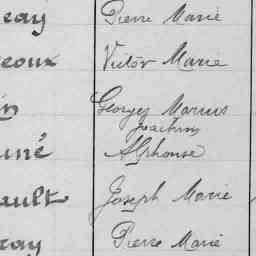 eay Pierre Marie
eoux Victor Marie
in Georges Marius
Joachim
uné Alphonse
ault Joseph Marie
ray Pierre Marie